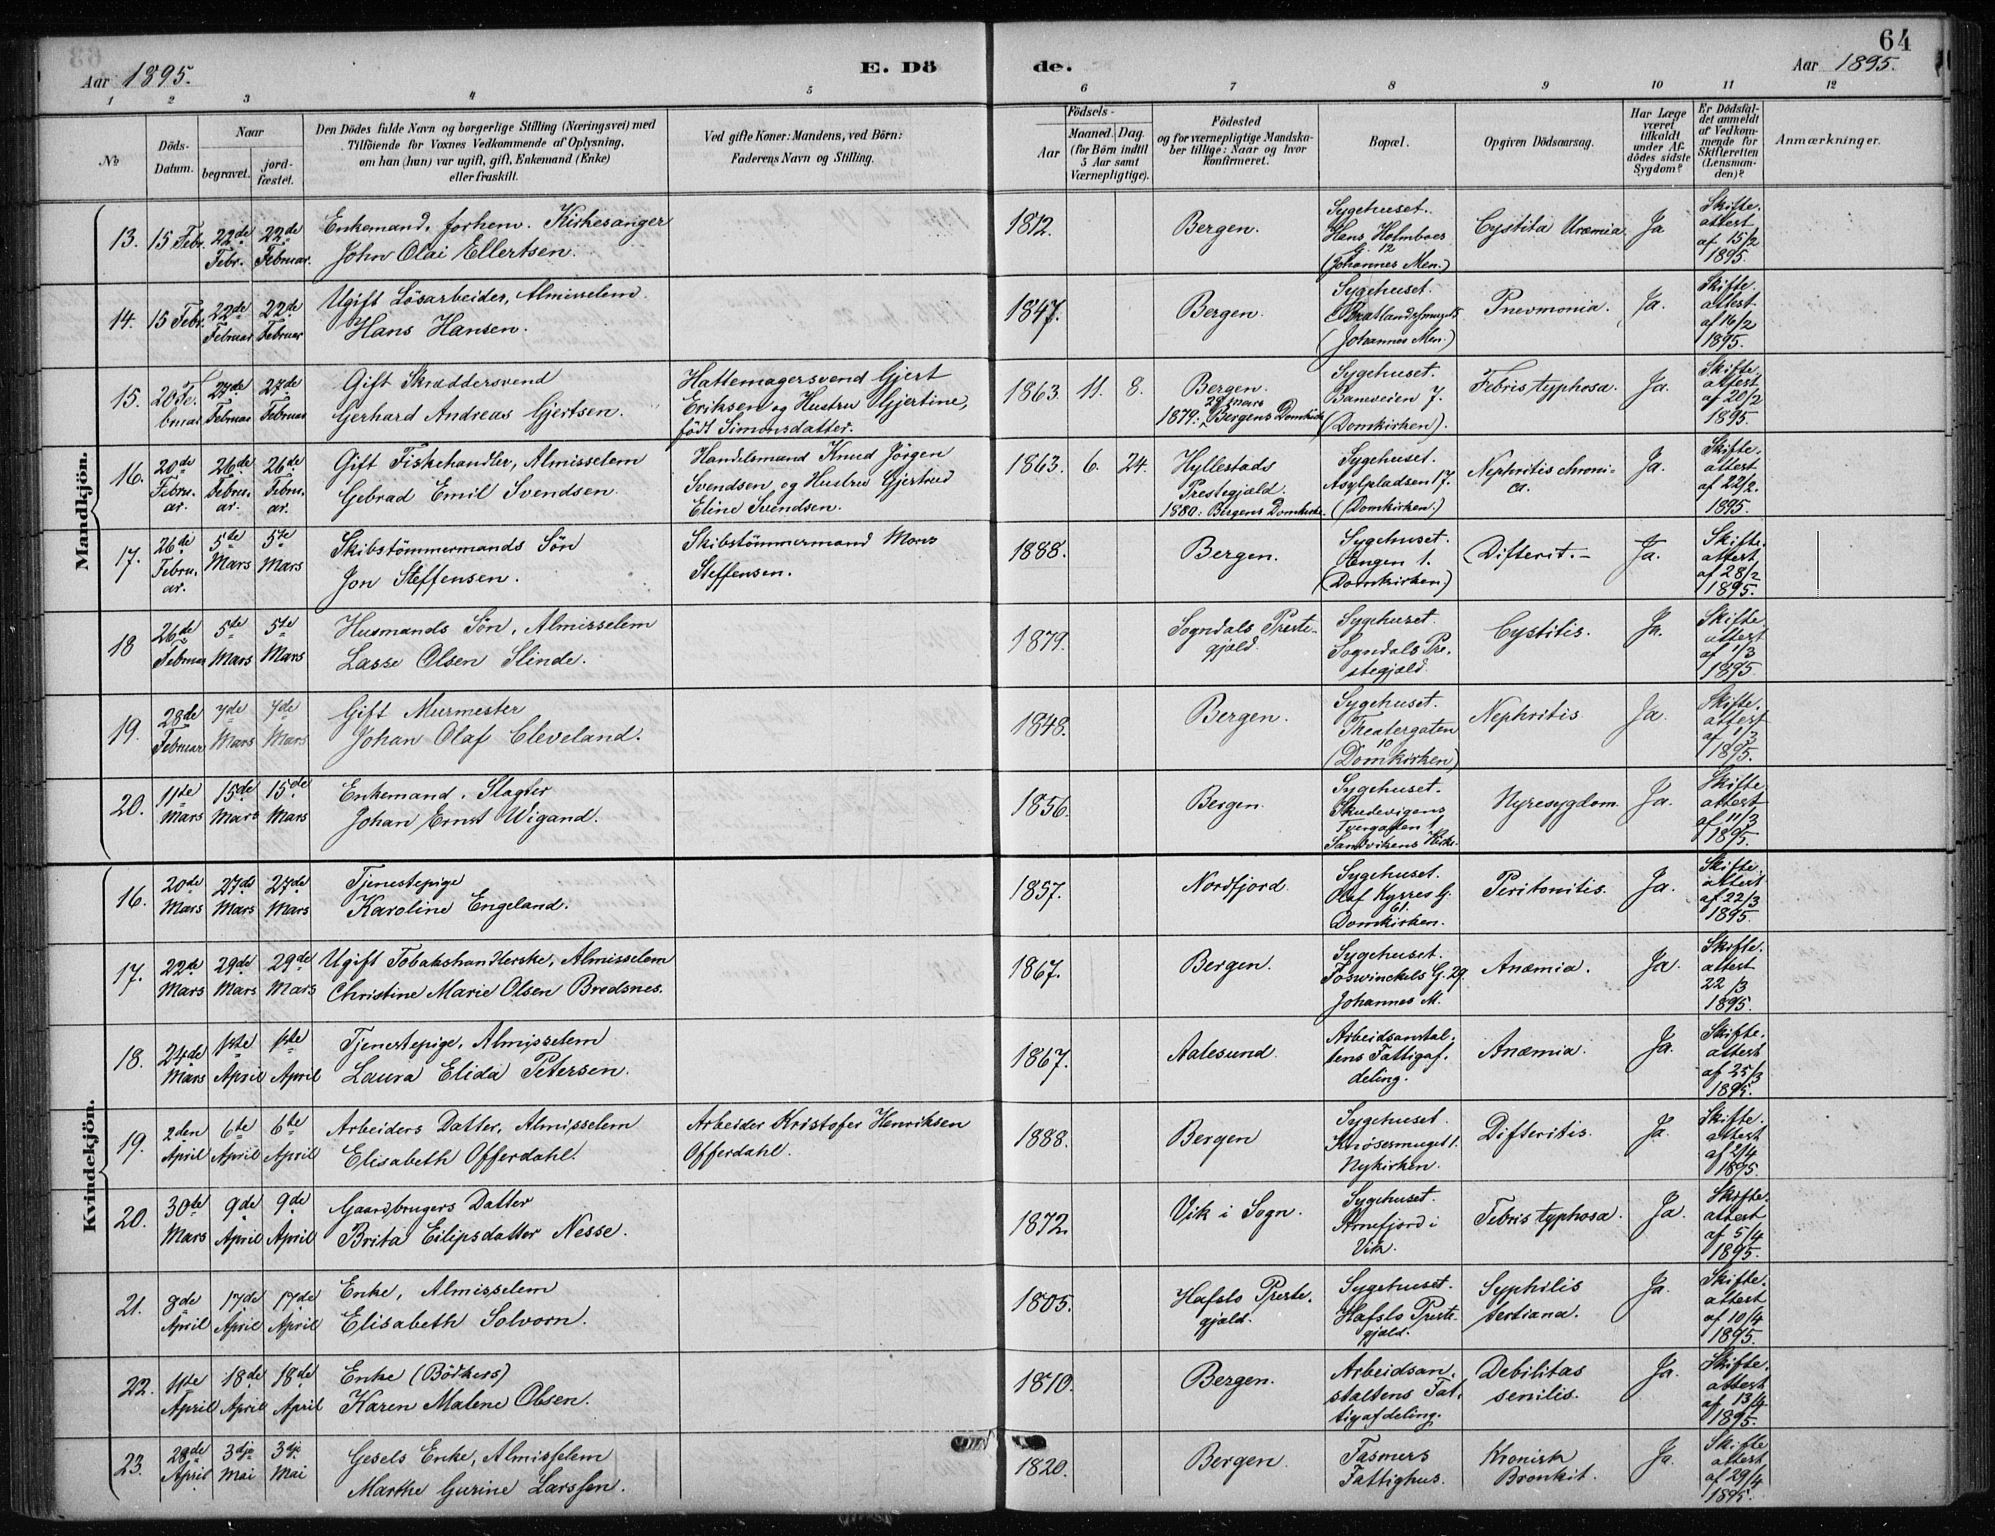 64
Aar 1895.
E. Dö de.
Aar 1895.
1 2 3 4 5 6 7 8 9 10 11 12
No
Döds-Datum.
Naar
begravet.
jord-fæstet.
Den Dödes fulde Navn og borgerlige Stilling (Næringsvei) med
Tilföiende for Voxnes Vedkommende af Oplysning,
om han (hun) var ugift, gift, Enkemand (Enke)
eller fraskilt.
Ved gifte Koner: Mandens, ved Börn:
Faderens Navn og Stilling.
Födsels-
Aar
Maaned. Dag.
(for Börn indtil
5 Aar samt
Værnepligtige).
Födested
og for værnepligtige Mandska-
ber tillige: Naar og hvor
konfirmeret.
Bopæl.
Opgiven Dödsaarsag.
Har Læge
været
tilkaldt
under Af-
dödes sidste
Sygdom?
Er Dödsfal-
det anmeldt
af Vedkom-
mende for
Skifteretten
(Lensman-
den)?
Anmærkninger.
Mandkjön.
13. 15 Febr. 22de Febr. 22de Februar. Enkemand, forhem. Kirkesanger
John Olai Ellertsen.
1812. Bergen. Sygehuset. Hans Holmboes G. 12 (Johannes Men.) Cystita Uræmia Ja Skifte. attest af 15/2 1895.
14. 15 Febr. 22de Februar 22de Februar Ugift Lösarbeider, Almisselem.
Hans Hansen.
1847. Bergen. Sygehuset. (Johannes Men.) Pnevmonia. Ja. Skifte. attest af 16/2 1895.
15. 20 Februar 27de Februar 27de Februar Gift Skræddersvend
Gerhard Andreas Gjertsen.
Hattemagersvend Gjert
Eriksen og Hustru Gjertine,
födt Simonsdatter.
1863. 11. 8. Bergen. 29 mars 1879: Bergens Domkirke Sygehuset. Baneveien 7. (Domkirken). Febris typhosa. Ja. Skifte. attest af 20/2 1895.
16. 20de Februar. 26de Februar. 26de Februar. Gift Fiskehandler, Almisselem
Gebrad Emil Svendsen.
Handelsmand Knud Jörgen
Svendsen og Hustru Gjertrud
Eline Svendsen.
1863. 6. 24. Hyllestads Prestegjæld. 1880: Bergens Domkirke. Sygehuset. Asylpladsen 17. (Domkirken.) Nephritis chronica. Ja. Skifte. attest af 22/2. 1895.
17. 26de Februar. 5te Mars 5te Mars Skibstömmermands Sön
Jon Steffensen.
Skibstömmermand Mons
Steffensen.
1888. Bergen. Sygehuset. Engen 1. (Domkirken.) Difterit.- Ja. Skifte. attest af 28/2 1895.
18 26de Februar 5te Mars 5te Mars Husmands Sön, Almisselem
Lasse Olsen Slinde.
1879. Sogndals Prestegjæld. Sygehuset. Sogndals Prestegjæld. Cystitis. Ja. Skifte. attest af 1/3 1895.
19. 28de Februar 7de Mars 7de Mars Gift Murmester
Johan Olaf Cleveland.
1848. Bergen. Sygehuset. Theatergaten 10 (Domkirken) Nephritis. Ja. Skifte. attest af 1/3 1895.
20. 11te Mars 15de Mars 15de Mars Enkemand. Slagter
Johan Ernst Wigand.
1856. Bergen. Sygehuset. Skudevigens Tvergaden 1. Sandvikens Kirke. Nyresygdom. Ja. Skifte attest af 11/3 1895.
Kvindekjön.
16. 20de Mars 27de Mars 27de Mars Tjenestepige
Karoline Engeland.
1857. Nordfjord. Sygehuset. Olaf Kyrres G. 61. Domkirken. Peritonitis. Ja. Skifte. attest af 22/3 1895.
17. 22de Mars 29de Mars 29de Mars Ugift Tobakshandlerske, Almisselem
Christine Marie Olsen Bredsnes.
1867. Bergen. Sygehuset. Foswinckels G. 29. Johannes M. Anæmia. Ja. Skifte. attest 22/3 1895.
18. 24de Mars 1ste April 1ste April Tjenestepige, Almisselem
Laura Elida Petersen.
1867. Aalesund. Arbeidsanstaltens Fattigafdeling. Anæmia. Ja. Skifte. attest af 25/3 1895.
19. 2den April 6te April 6te April Arbeiders Datter, Almisselem
Elisabeth Offerdahl.
Arbeider Kristofer Henriksen
Offerdahl.
1888. Bergen Sygehuset. Knösesmuget 1. Nykirken. Difteritis. Ja. Skifte. attest af 2/4 1895
20. 30te Mars 9de April 9de April Gaardbrugers Datter
Brita Eilipsdatter Nesse.
1872. Vik i Sogn. Sygehuset. Arnefjord i Vik. Febris typhosa. Ja. Skifte. attest af 5/4 1895.
21. 8de April 17de April 17de April Enke, Almisselem
Elisabeth Solvorn.
1805. Hafslo Prestegjæld. Sygehuset. Hafslo Prestegjæld. Syphilis tertiana. Ja. Skifte. attest af 10/4 1895.
22. 11te April 18de April 18de April Enke (Bödkers)
Karen Malene Olsen.
1810. Bergen. Arbeidsanstaltens Fattigafdeling. Debilitas senilis. Ja. Skifte. attest af 13/4 1895.
23. 28de April 3dje Mai 3dje Mai Gesels Enke, Almisselem
Marthe Gurine Larssen.
1820. Bergen. Fasmers Fattighus. Kronisk Bronkit. Ja. Skifte attest af 29/4 1895.